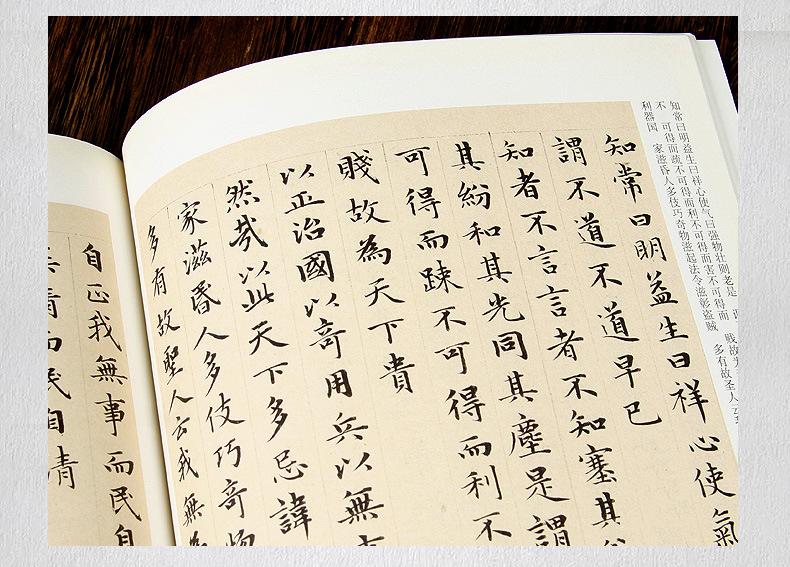 知常曰明益生曰祥心使气曰强物壮则老是
不 可得而疏不可得而利不可得而害不可得而 贱故为
利器国 家滋昏人多伎巧奇物滋起法令滋彰盗贼 多有故圣人云
知常曰明益生曰祥心使氣
謂不道不道早已
知者不言言者不知塞其
其紛和其光同其塵是謂
可得而踈不可得而利不
賤故為天下貴
以正治國以竒用兵以無
然哉以此天下多忌諱
家滋昬人多伎巧竒物
多有故聖人云我無為
自正我無事而民自
而民自清